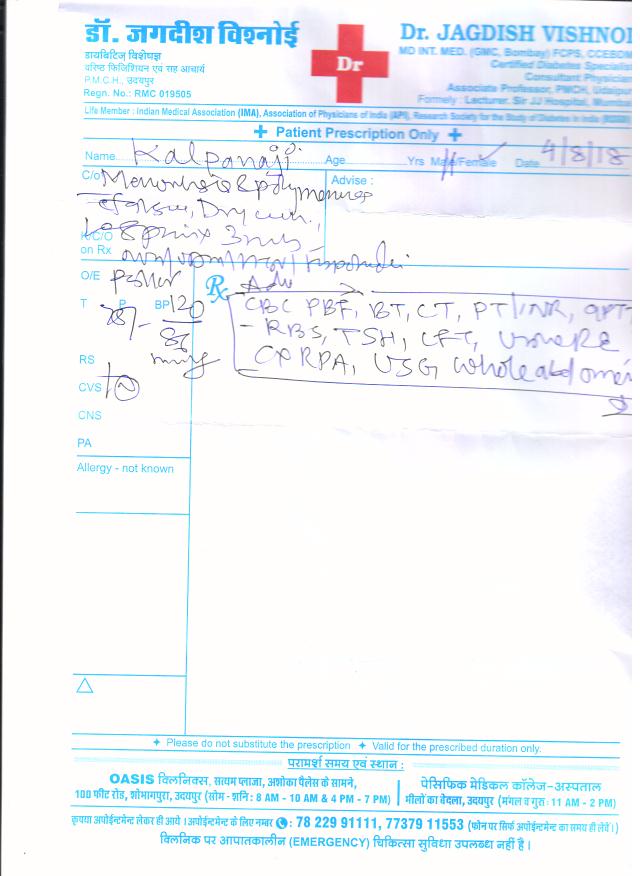 डॉ. जगदीश विश्नोई
डायबिटिज़ विशेषज्ञ
वरिष्ठ फिजिशियन एवं सह आचार्य
P.M.C.H., उदयपुर
Regn. No.: RMC 019505
Dr
Dr. JAGDISH VISHNOI
MD INT. MED. (GMC, Bombay) FCPS, CCEBDM
Certified Diabetes Specialist
Consultant Physician
Associate Professor, PMCH, Udaipur
Formerly : Lecturer. Sir JJ Hospital, Mumbai
Life Member : Indian Medical Association (IMA), Association of Physicians of India (API), Research Society for the Study of Diabetes in India
Patient Prescription Only
Name Kalpanaji Age Yrs Male/Female Date 4/8/18
C/o
Advise :
Dry
K/C/O
on Rx
3
O/E Pallor
Rx Adv
T P 78/- BP 120
86
CBC PBF, BT, CT, PT/INR,
- RBS, TSH, LFT,
CXRPA, USG whole abdomen
RS
CVS
CNS
PA
Allergy - not known
△
Please do not substitute the prescription Valid for the prescribed duration only.
परामर्श समय एवं स्थान :
OASIS क्लिनिक्स, सत्यम प्लाजा, अशोका पैलेस के सामने,
100 फीट रोड, शोभागपुरा, उदयपुर (सोम - शनि : 8 AM - 10 AM & 4 PM - 7 PM)
पेसिफिक मेडिकल कॉलेज-अस्पताल
भीलों का बेदला, उदयपुर (मंगल व गुरु : 11 AM - 2 PM)
कृपया अपोईन्टमेन्ट लेकर ही आये । अपोईन्टमेन्ट के लिए नम्बर : 78 229 91111, 77379 11553 (फोन पर सिर्फ अपोईन्टमेन्ट का समय ही लेवें।)
क्लिनिक पर आपातकालीन (EMERGENCY) चिकित्सा सुविधा उपलब्ध नहीं है ।